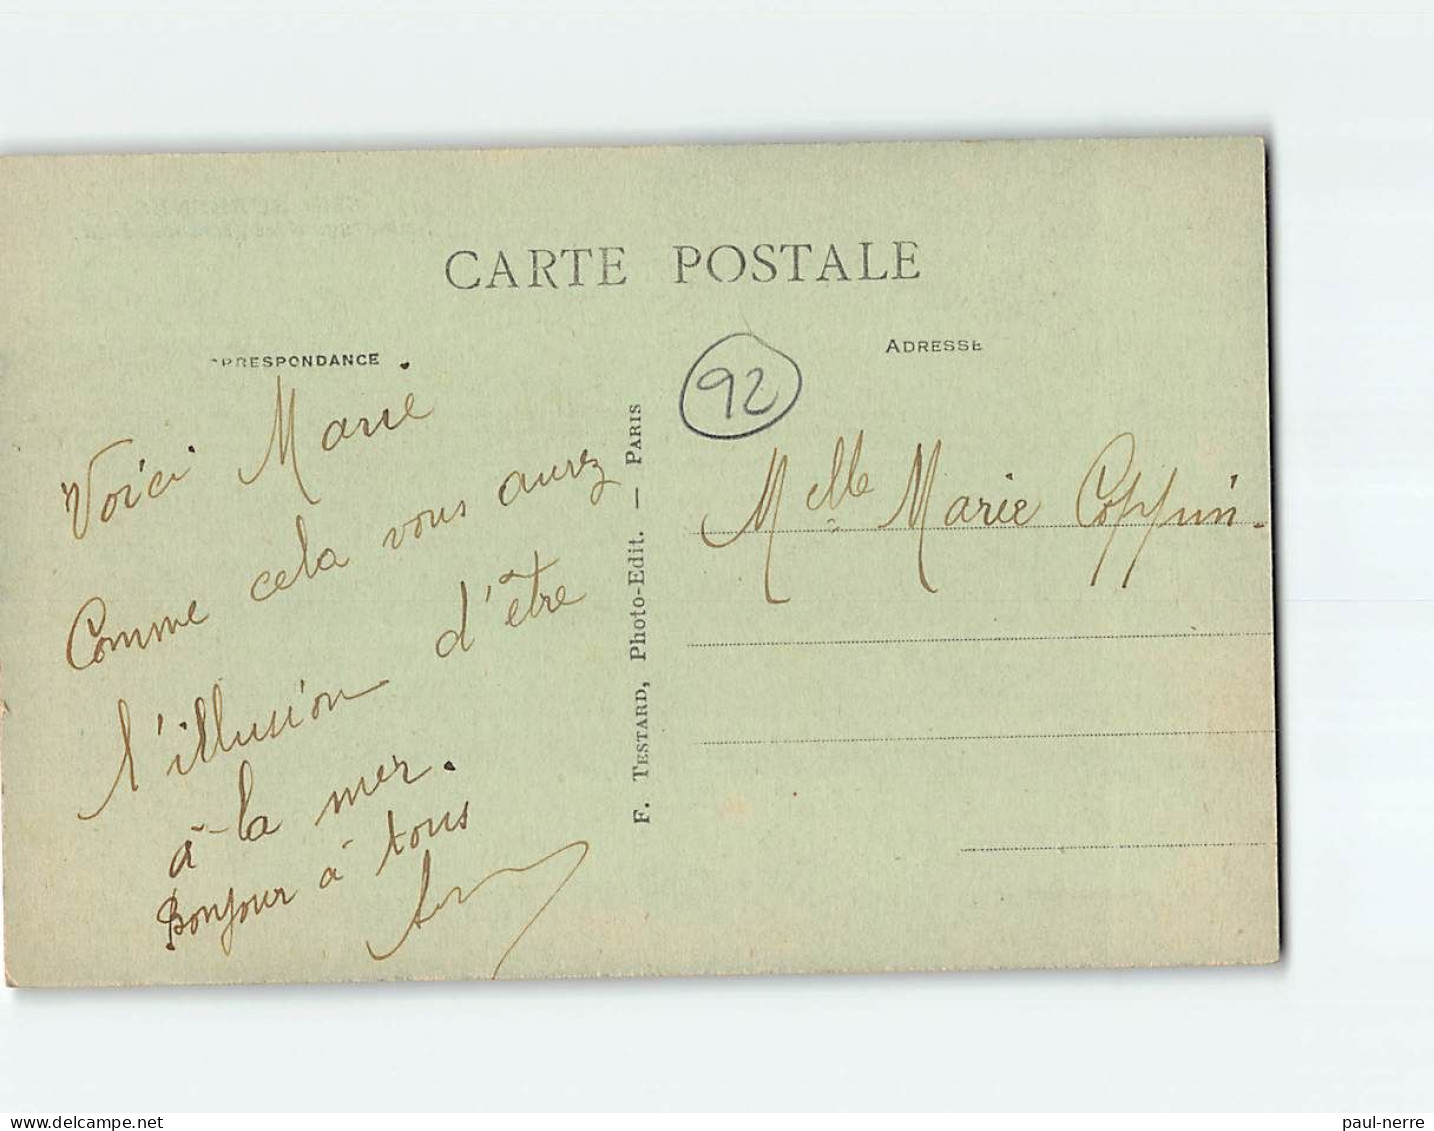 CARTE POSTALE
CORRESPONDANCE
ADRESSE
92
Voici Marie
Comme cela vous aurez
l'illusion d'être
à la mer.
Bonjour à tous
F. TESTARD, Photo-Edit. — PARIS
Melle Marie Coppin
Delcampe.net
paul-nerre